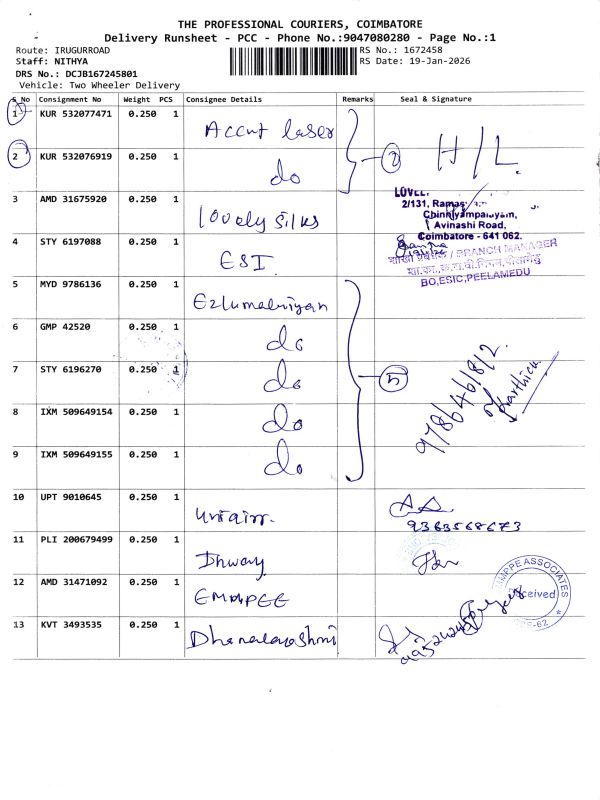 THE PROFESSIONAL COURIERS, COIMBATORE
Delivery Runsheet - PCC - Phone No.:9047080280 - Page No.:1
Route: IRUGURROAD
Staff: NITHYA
DRS No.: DCJB167245801
Vehicle: Two Wheeler Delivery
RS No.: 1672458
RS Date: 19-Jan-2026
S_No Consignment No Weight PCS Consignee Details Remarks Seal & Signature
1 KUR 532077471 0.250 1 Accut laser
2 KUR 532076919 0.250 1 do
2 H/L
3 AMD 31675920 0.250 1 lovely silks
2/131,
Chinniyampalayam,
Avinashi Road,
Coimbatore - 641 062.
4 STY 6197088 0.250 1 ESI
/ BRANCH MANAGER
BO,ESIC,PEELAMEDU
5 MYD 9786136 0.250 1 Ezlumalriyan
6 GMP 42520 0.250 1 do
7 STY 6196270 0.250 1 do
5
8 IXM 509649154 0.250 1 do
9 IXM 509649155 0.250 1 do
Karthick
10 UPT 9010645 0.250 1 Unfairr.
9363568673
11 PLI 200679499 0.250 1 Dhway
12 AMD 31471092 0.250 1 EMMPEE
ASSOCIATES
Received
13 KVT 3493535 0.250 1 Dhanalakshmi